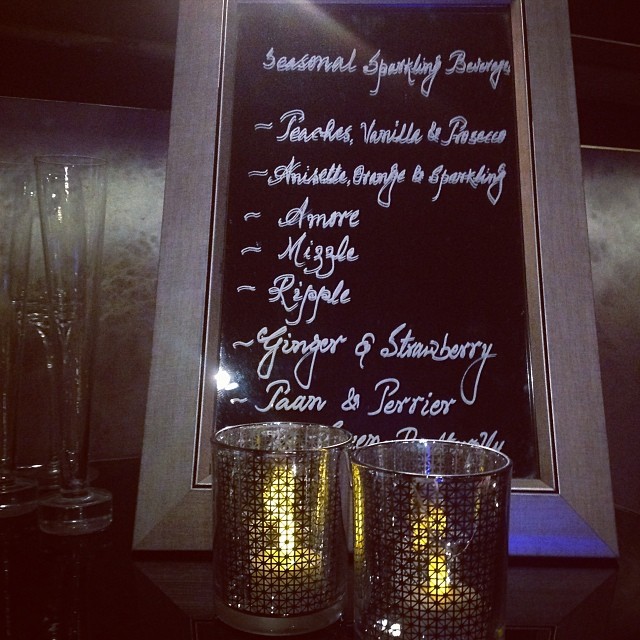 Seasonal Sparkling Beverage
~ Peaches, Vanilla & Prosecco
~ Anisette, Orange & Sparkling
~ Amore
~ Mizzle
~ Ripple
~ Ginger & Strawberry
~ Paan & Perrier